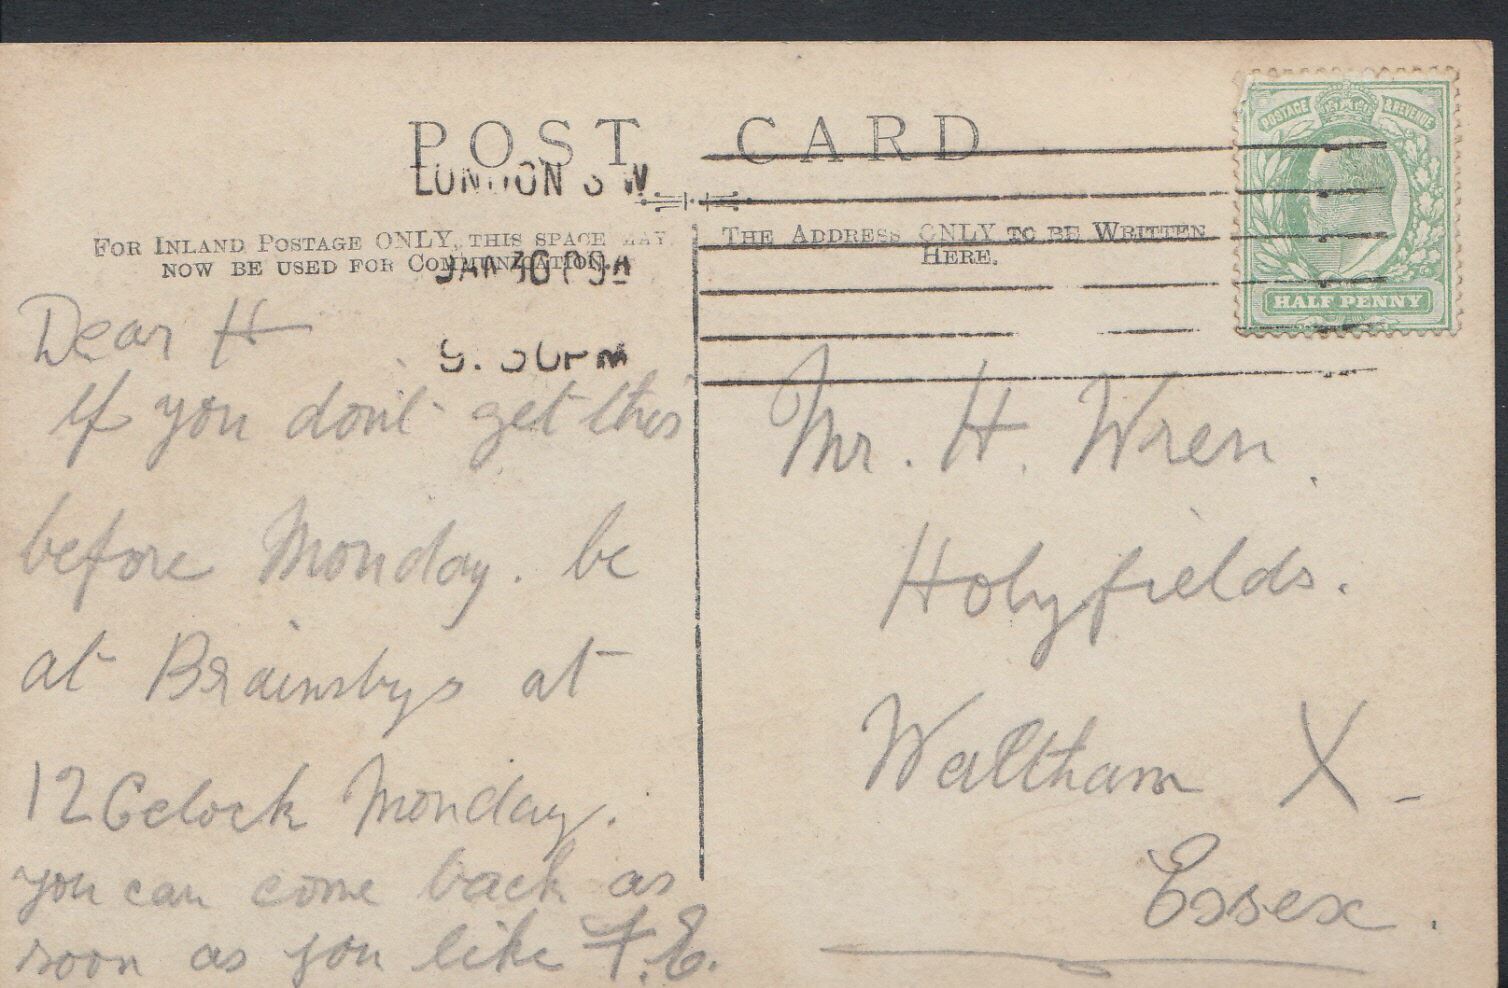 POST CARD
LONDON S W
FOR INLAND POSTAGE ONLY, THIS SPACE MAY
NOW BE USED FOR COMMUNICATION.
JAN 30 09
9.30PM
Dear H
If you don't get this
before Monday. be
at Brainsbys at
12 Oclock Monday.
you can come back as
soon as you like F.E.
THE ADDRESS ONLY TO BE WRITTEN
HERE.
POSTAGE & REVENUE
HALF PENNY
Mr. H. Wren.
Holyfields.
Waltham X-
Essex.